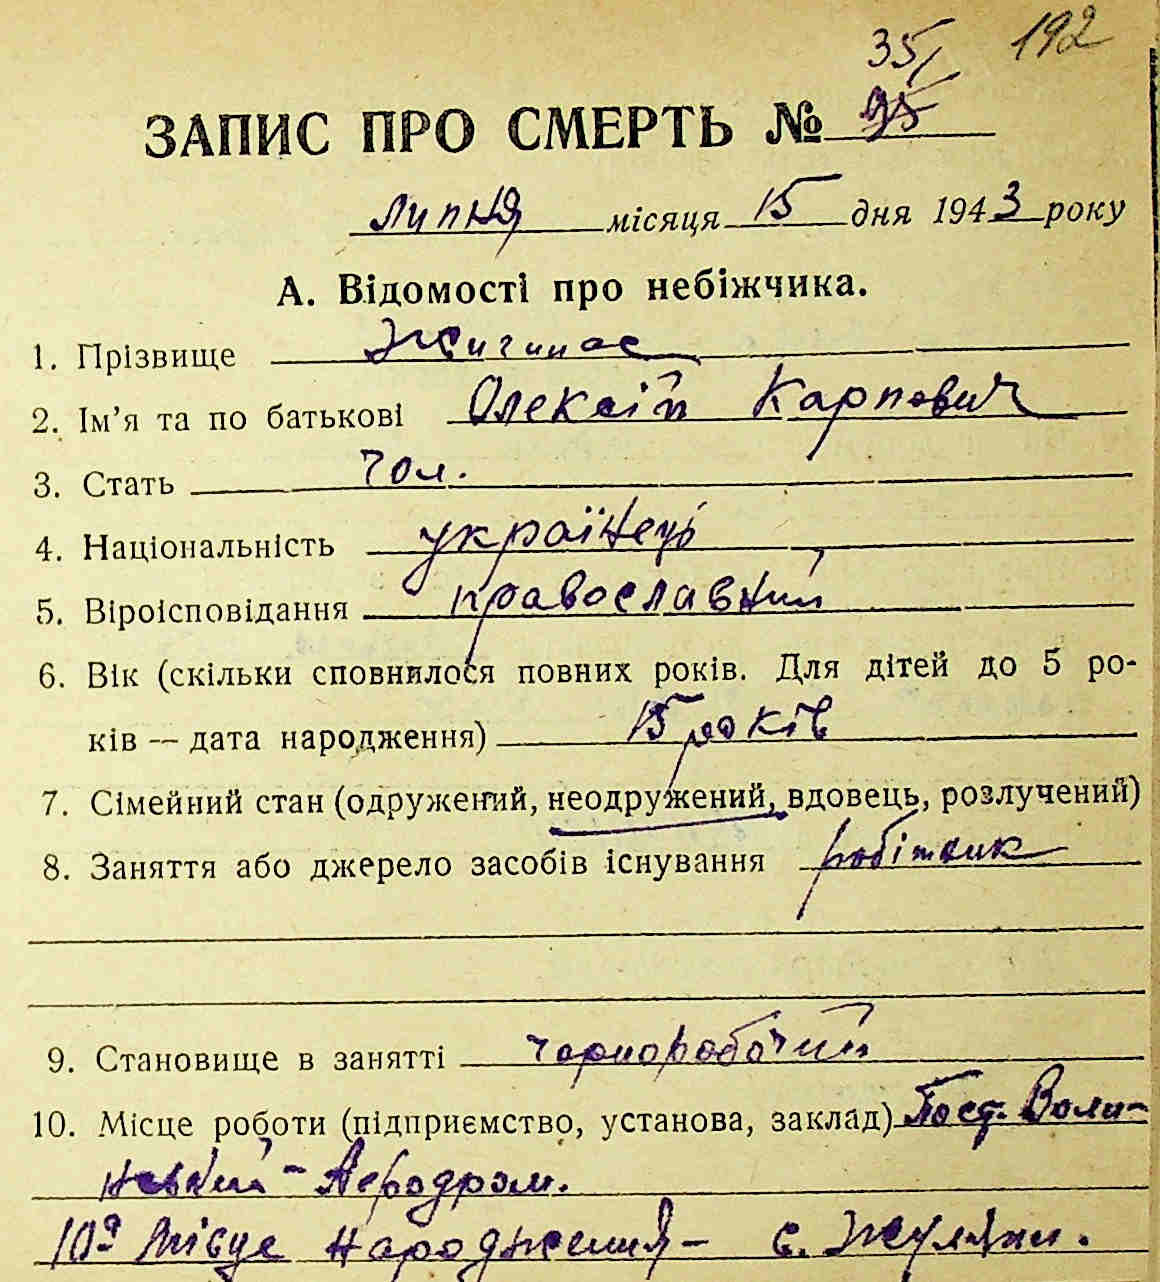 192
35/
ЗАПИС ПРО СМЕРТЬ № 95
липня місяця 15 дня 1943 року
А. Відомості про небіжчика.
1. Прізвище Жигинас
2. Ім'я та по батькові Олексій Карпович
3. Стать чол.
4. Національність українець
5. Віроісповідання православний
6. Вік (скільки сповнилося повних років. Для дітей до 5 ро-
ків — дата народження) 15 років
7. Сімейний стан (одружений, неодружений, вдовець, розлучений)
8. Заняття або джерело засобів існування робітник
9. Становище в занятті чорноробочий
10. Місце роботи (підприємство, установа, заклад)
Аеродром.
10а Місце народження - с. Жуляни.